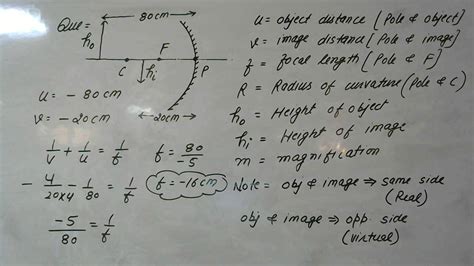 Que=
80cm
ho
C
F
P
hi
20cm
u = - 80cm
v = - 20cm
1/v + 1/u = 1/f
f = 80/-5
- 4/20x4 - 1/80 = 1/f
f = -16cm
-5/80 = 1/f
u = object distance [Pole & object]
v = image distance [Pole & image]
f = focal length [Pole & F]
R = Radius of curvature [Pole & C]
ho = Height of object
hi = Height of image
m = magnification
Note = obj & image ⇒ same side
(Real)
obj & image ⇒ opp. side
(virtual)